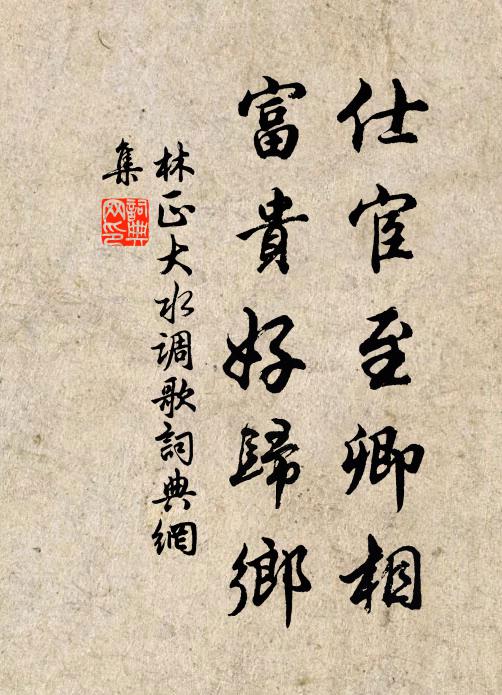 仕宦至卿相
富貴好歸鄉
林正大水调歌詞典網
集
詞典網印